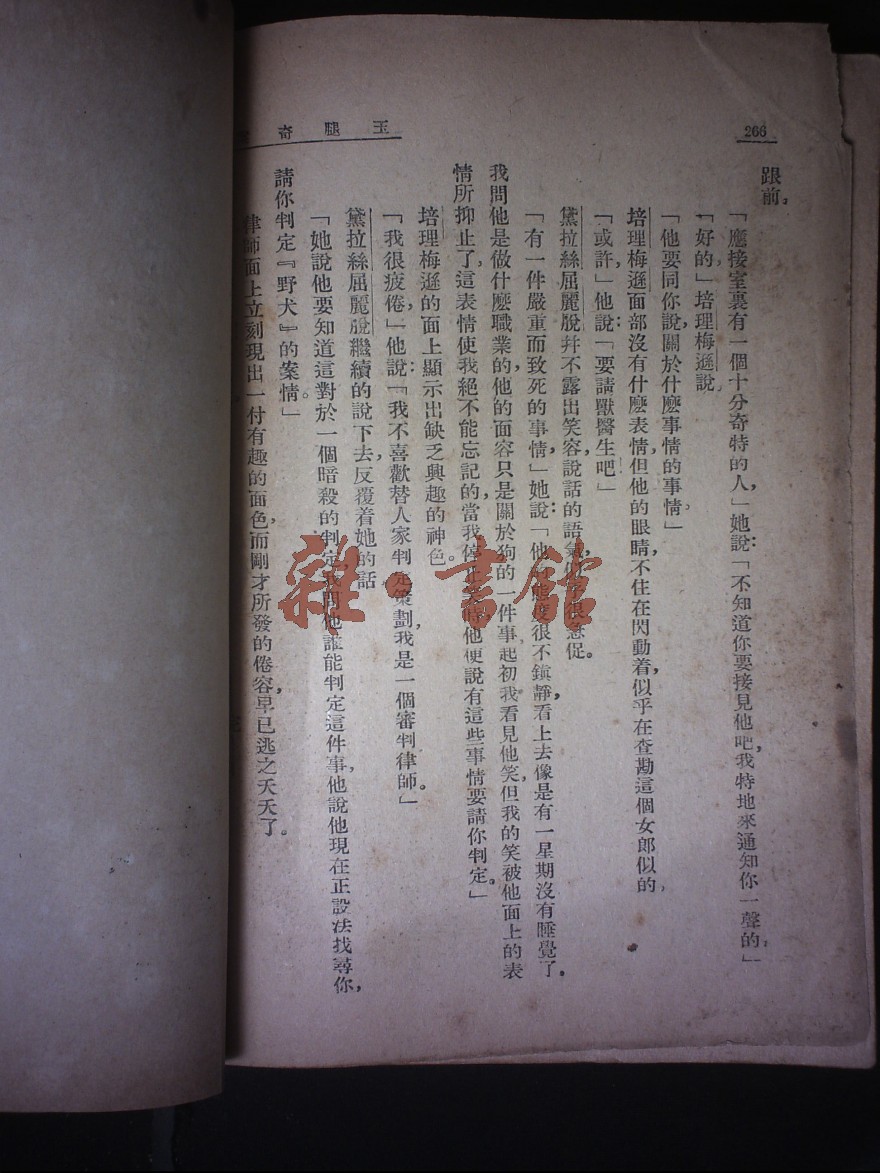 266
玉腿奇
跟前。
「應接室裏有一個十分奇特的人」她說：「不知道你要接見他吧，我特地來通知你一聲的，」
「好的」培理梅遜說，
「他要同你說關於什麽事情的事情」
培理梅遜面部沒有什麽表情，但他的眼睛，不住在閃動着，似乎在查勘這個女郎似的，
「或許」他說：「要請獸醫生吧」
黛拉絲屈麗脫幷不露出笑容，說話的語氣似乎很急促。
「有一件嚴重而致死的事情」她說：「他的態度很不鎮靜，看上去像是有一星期沒有睡覺了。
我問他是做什麽職業的，他的面容只是關於狗的一件事，起初我看見他笑，但我的笑被他面上的表
情所抑止了，這表情使我絕不能忘記的，當我停止笑時他便說有這些事情要請你判定。」
培理梅遜的面上顯示出缺乏興趣的神色。
「我很疲倦」他說：「我不喜歡替人家判定策劃，我是一個審判律師。」
黛拉絲屈麗脫繼續的說下去，反覆着她的話
「她說他要知道這對於一個暗殺的判定，我問他誰能判定這件事，他說他現在正設法找尋你，
請你判定『野犬』的案情。」
律師面上立刻現出一付有趣的面色，而剛才所發的倦容，早已逃之夭夭了。
雜·書館